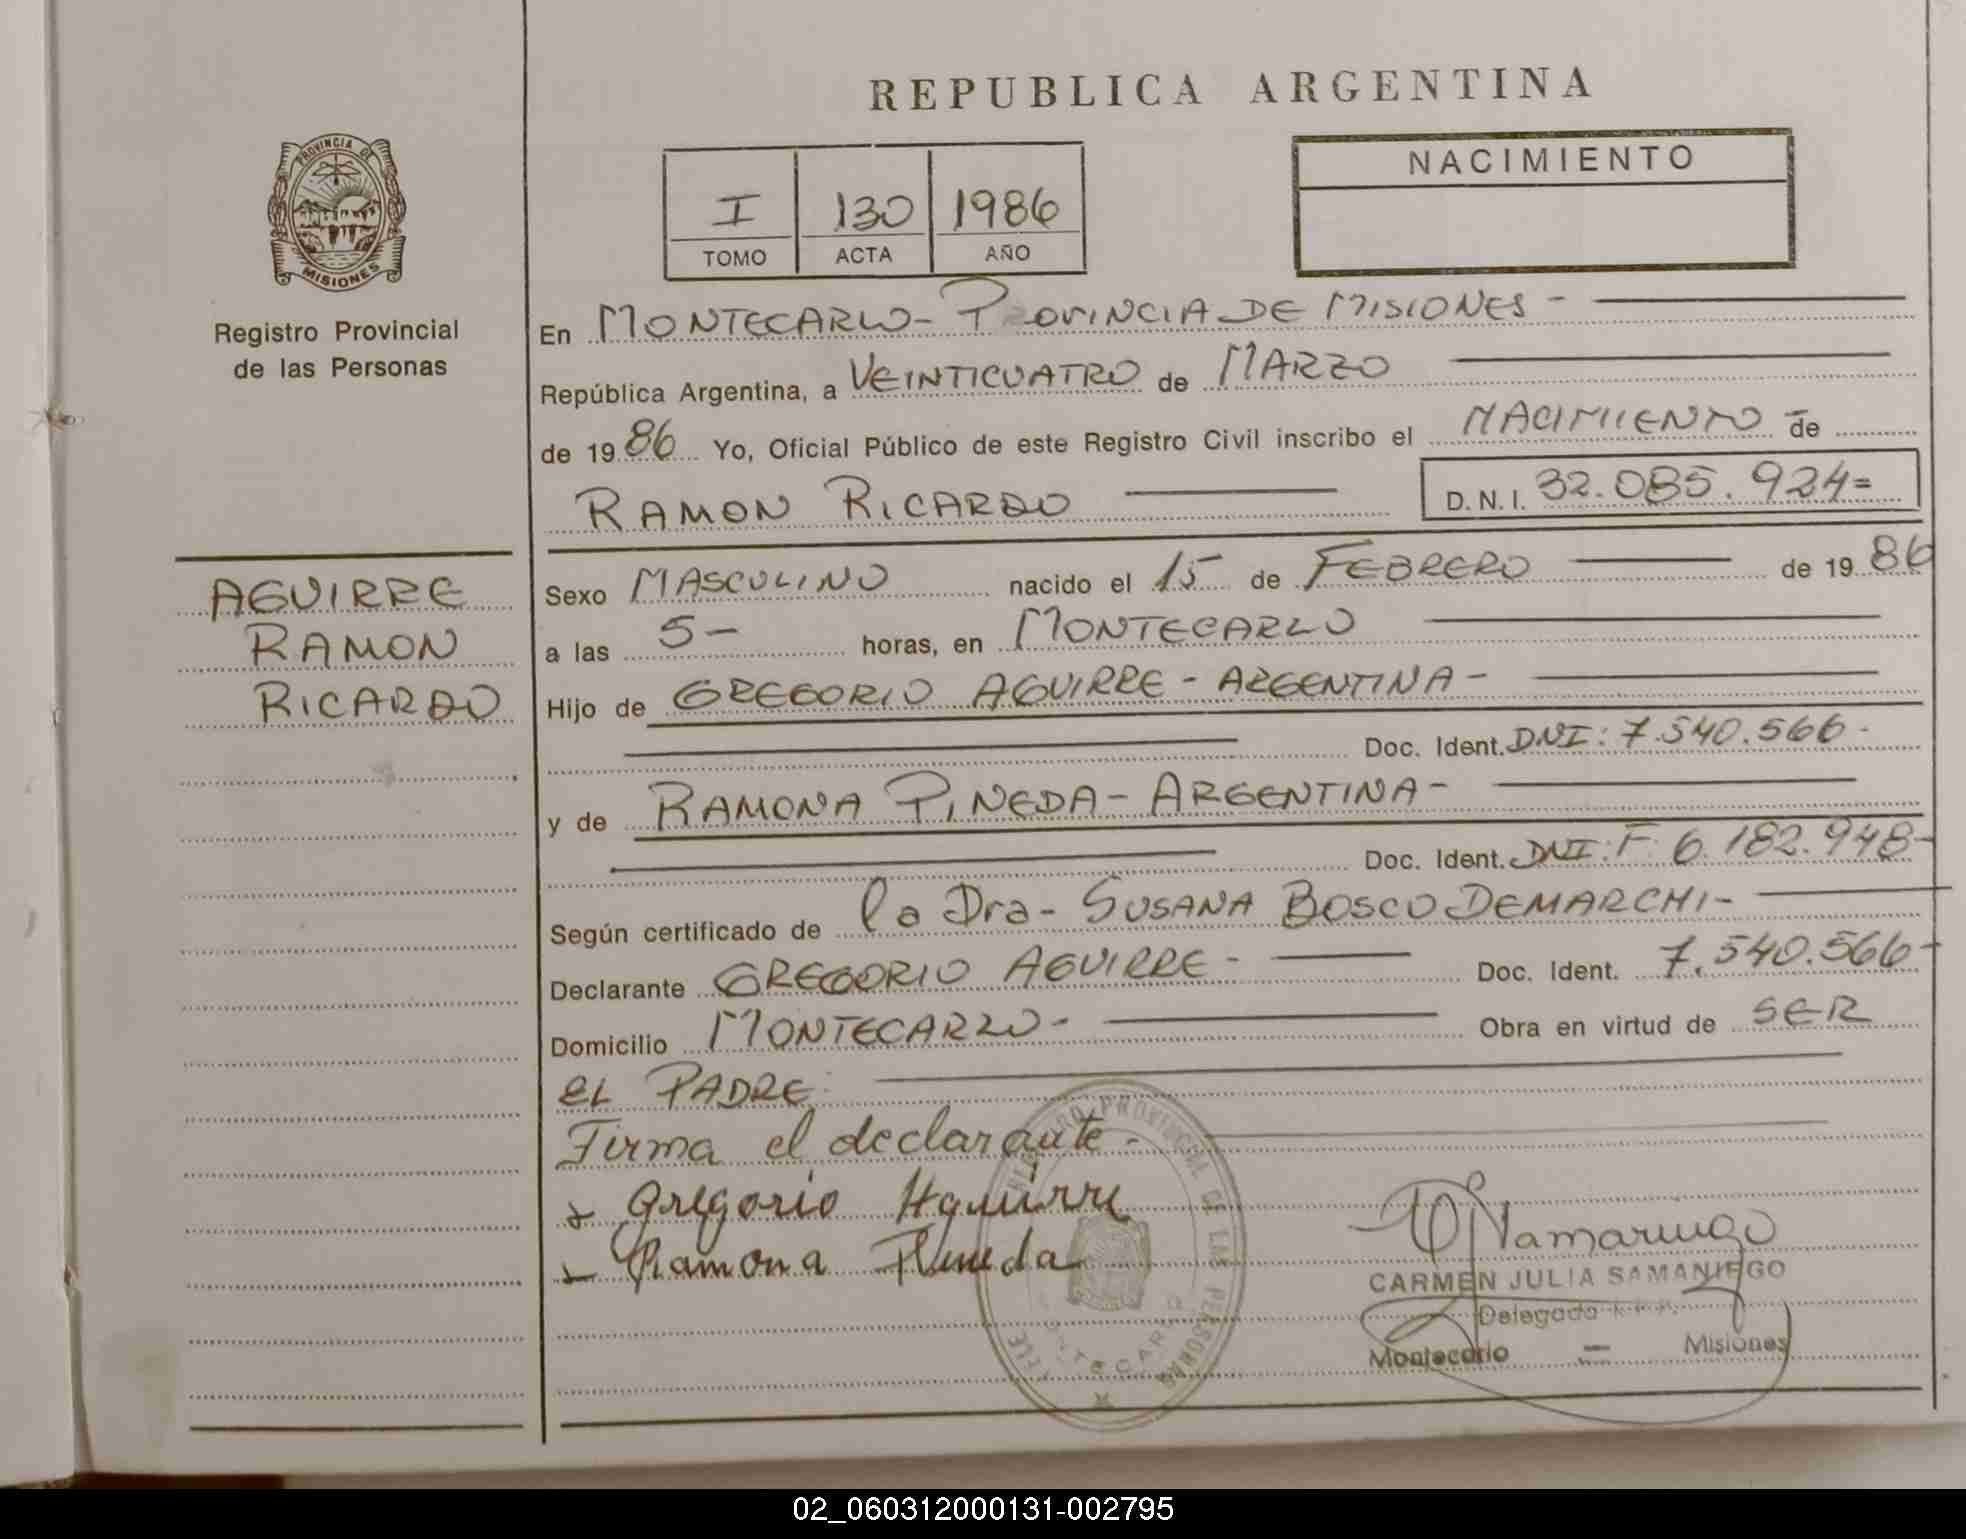 REPUBLICA ARGENTINA
PROVINCIA DE
MISIONES
Registro Provincial
de las Personas
I 130 1986
TOMO ACTA AÑO
NACIMIENTO
En MONTECARLO- PROVINCIA DE MISIONES -
República Argentina, a VEINTICUATRO de MARZO
de 1986 Yo, Oficial Público de este Registro Civil inscribo el NACIMIENTO de
RAMON RICARDO D.N.I. 32.085.924=
AGUIRRE
RAMON
RICARDO
Sexo MASCULINO nacido el 15 de FEBRERO de 1986
a las 5- horas, en MONTECARLO
Hijo de GREGORIO AGUIRRE - ARGENTINA -
Doc. Ident. DNI: 7.540.566-
y de RAMONA PINEDA - ARGENTINA -
Doc. Ident. DNI: F. 6.182.948-
Según certificado de la Dra- SUSANA BOSCO DEMARCHI-
Declarante GREGORIO AGUIRRE - Doc. Ident. 7.540.566-
Domicilio MONTECARLO- Obra en virtud de SER
EL PADRE:
Firma el declarante.-
Gregorio Aguirre
Ramona Pineda
REGISTRO PROVINCIAL DE LAS PERSONAS
MONTECARLO
CARMEN JULIA SAMANIEGO
Delegada R.P.P.
Montecarlo - Misiones
02_060312000131-002795